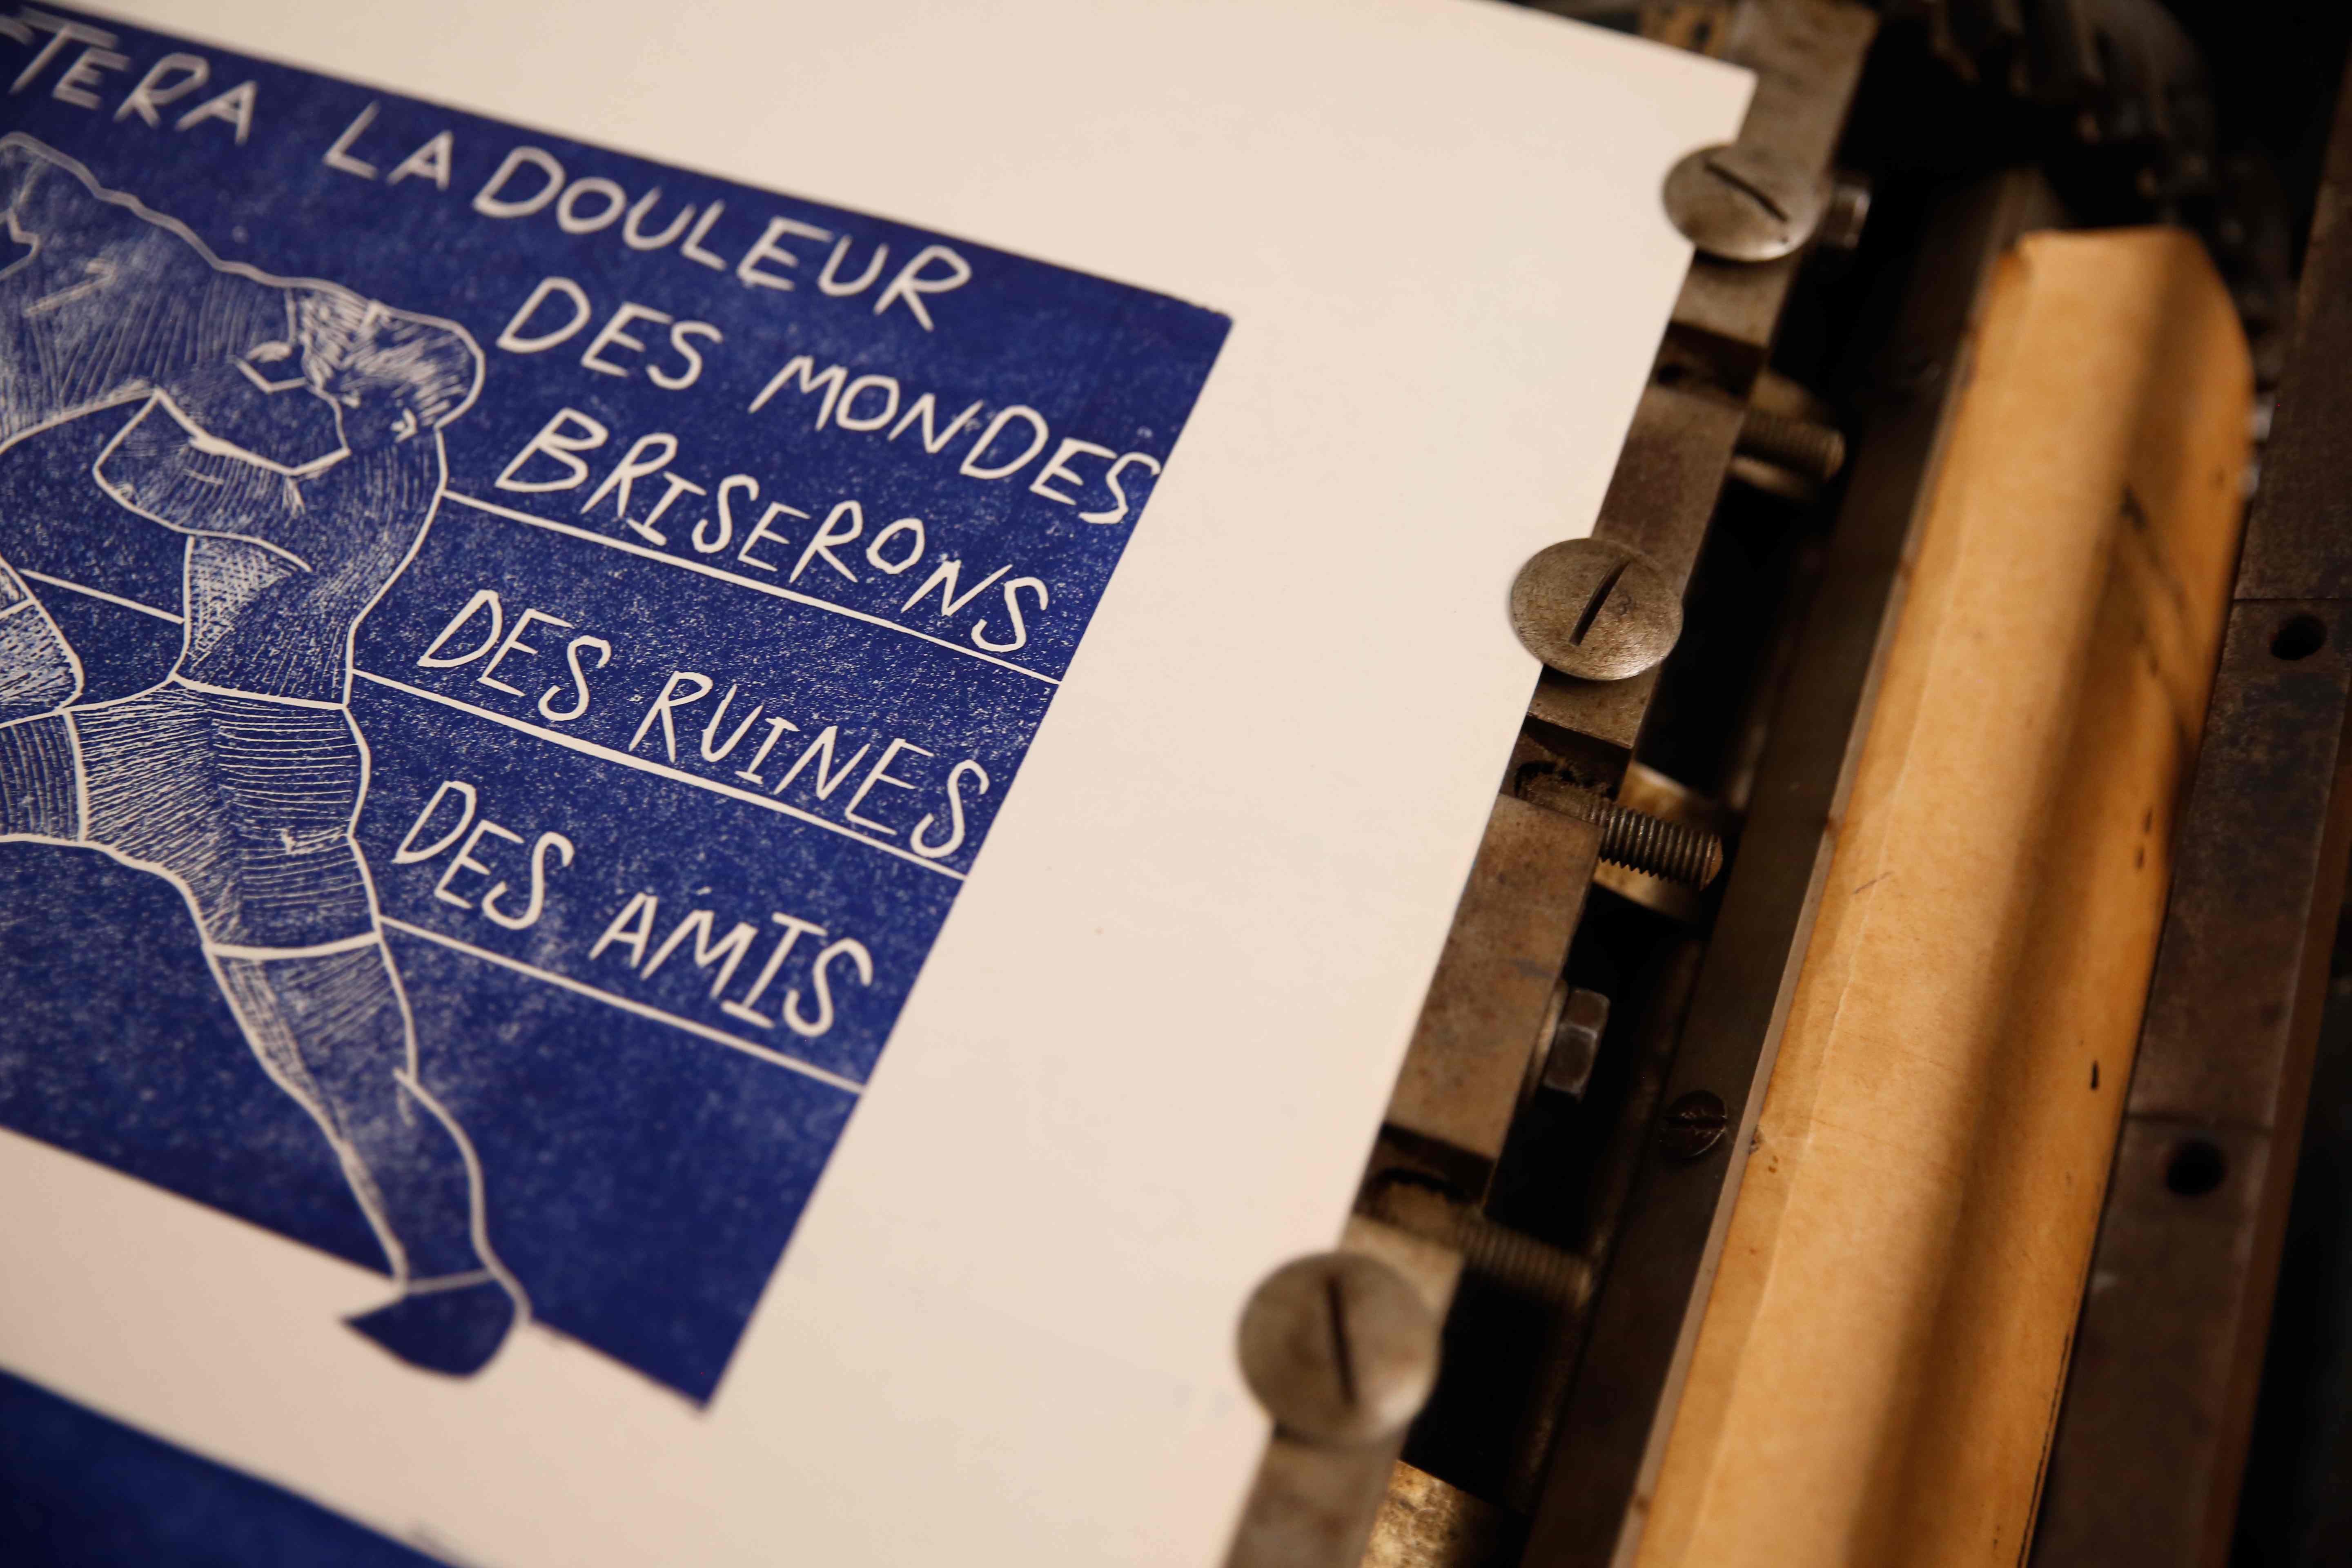 TERA LA DOULEUR
DES MONDES
BRISERONS
DES RUINES
DES AMIS